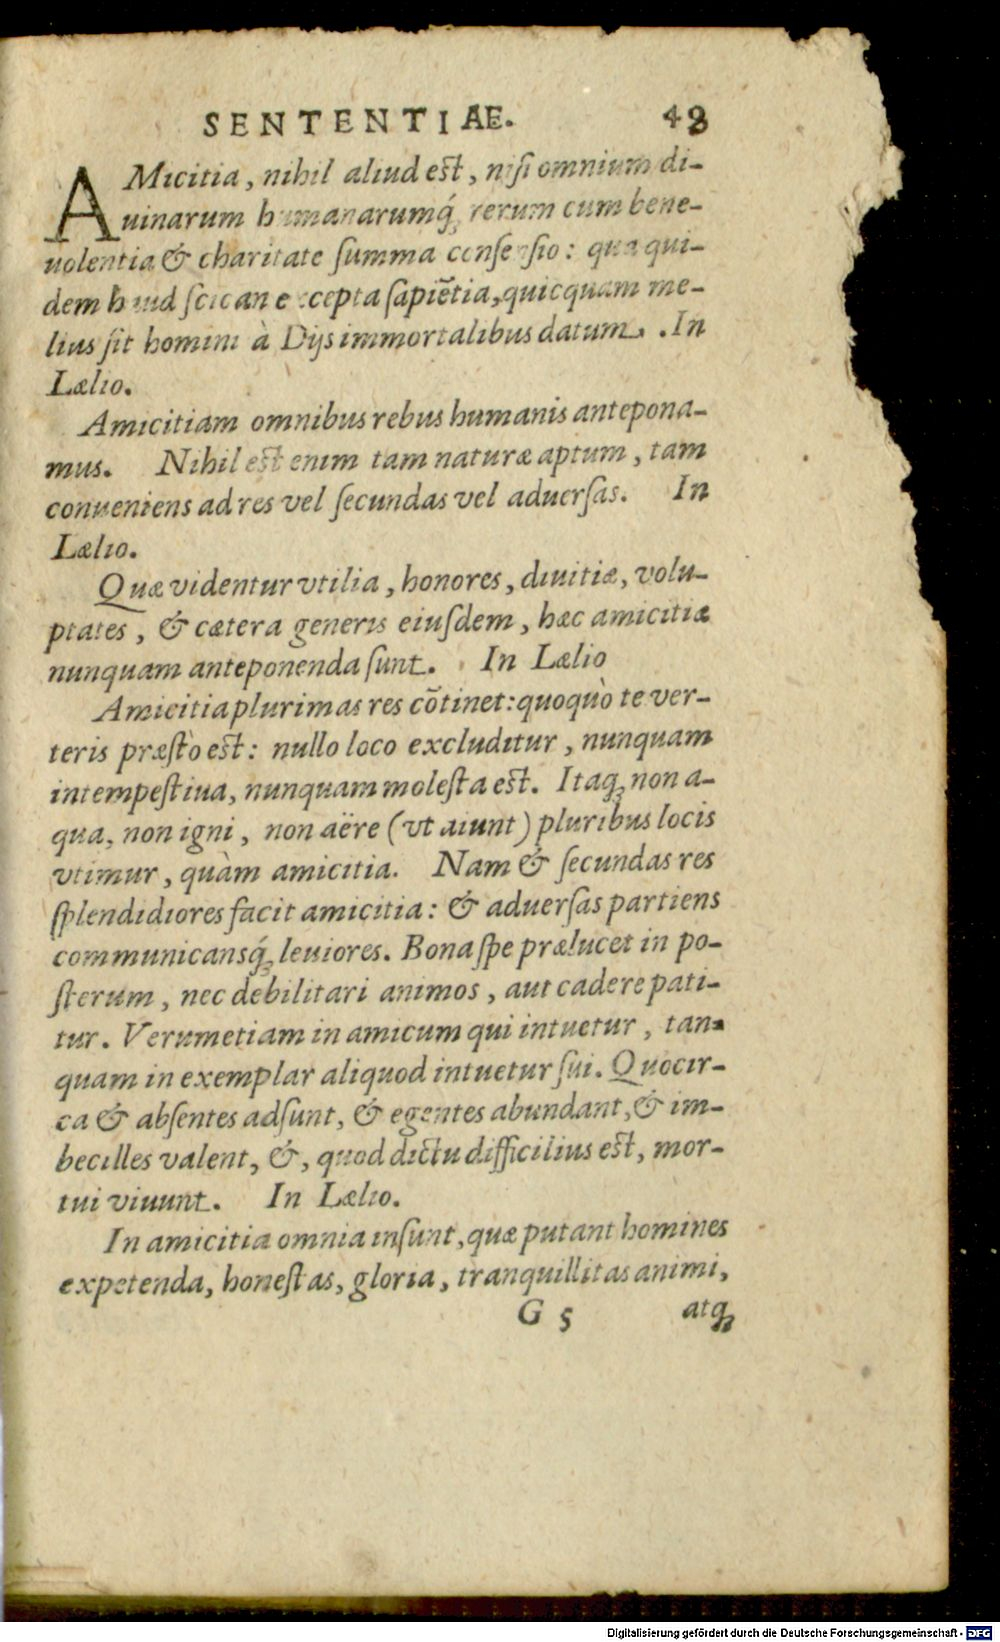 SENTENTIAE. 48
AMicitia, nihil aliud est, nisi omnium di-
uinarum humanarumq́; rerum cum bene-
uolentia & charitate summa consensio: qua qui-
dem haud scio an excepta sapiẽtia, quicquam me-
lius sit homini à Dijs immortalibus datum. . In
Lælio.
Amicitiam omnibus rebus humanis antepona-
mus. Nihil est enim tam naturæ aptum, tam
conueniens ad res vel secundas vel aduersas. In
Lælio.
Quæ videntur vtilia, honores, diuitiæ, volu-
ptates, & cætera generis eiusdem, hæc amicitiæ
nunquam anteponenda sunt. In Lælio
Amicitia plurimas res cõtinet: quoquò te ver-
teris præstò est: nullo loco excluditur, nunquam
intempestiua, nunquam molesta est. Itaq; non a-
qua, non igni, non aëre (vt aiunt) pluribus locis
vtimur, quàm amicitia. Nam & secundas res
splendidiores facit amicitia: & aduersas partiens
communicansq́; leuiores. Bona spe prælucet in po-
sterum, nec debilitari animos, aut cadere pati-
tur. Verumetiam in amicum qui intuetur, tan-
quam in exemplar aliquod intuetur sui. Quocir-
ca & absentes adsunt, & egentes abundant, & im-
becilles valent, &, quod dictu difficilius est, mor-
tui viuunt. In Lælio.
In amicitia omnia insunt, quæ putant homines
expetenda, honestas, gloria, tranquillitas animi,
G 5 atq;
Digitalisierung gefördert durch die Deutsche Forschungsgemeinschaft - DFG